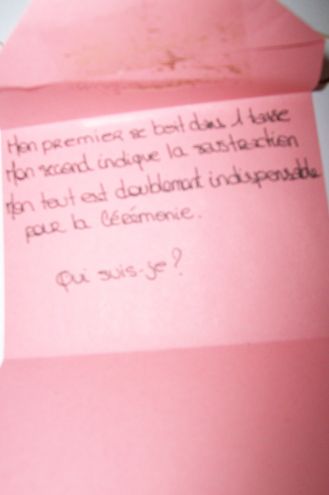 Mon premier se boit dans 1 tasse
Mon second indique la sustraction
Mon tout est doublement indispensable
pour la Cérémonie.
Qui suis-je ?